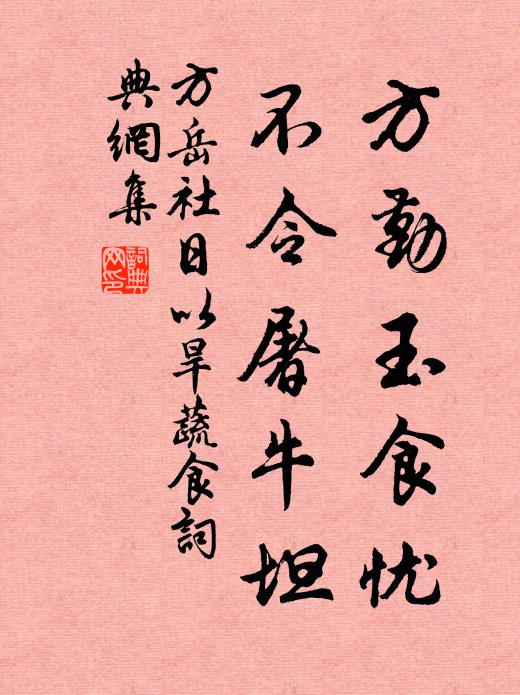 方勤玉食忧
不令屠牛坦
方岳社日以旱蔬食詞
典網集
詞典网印